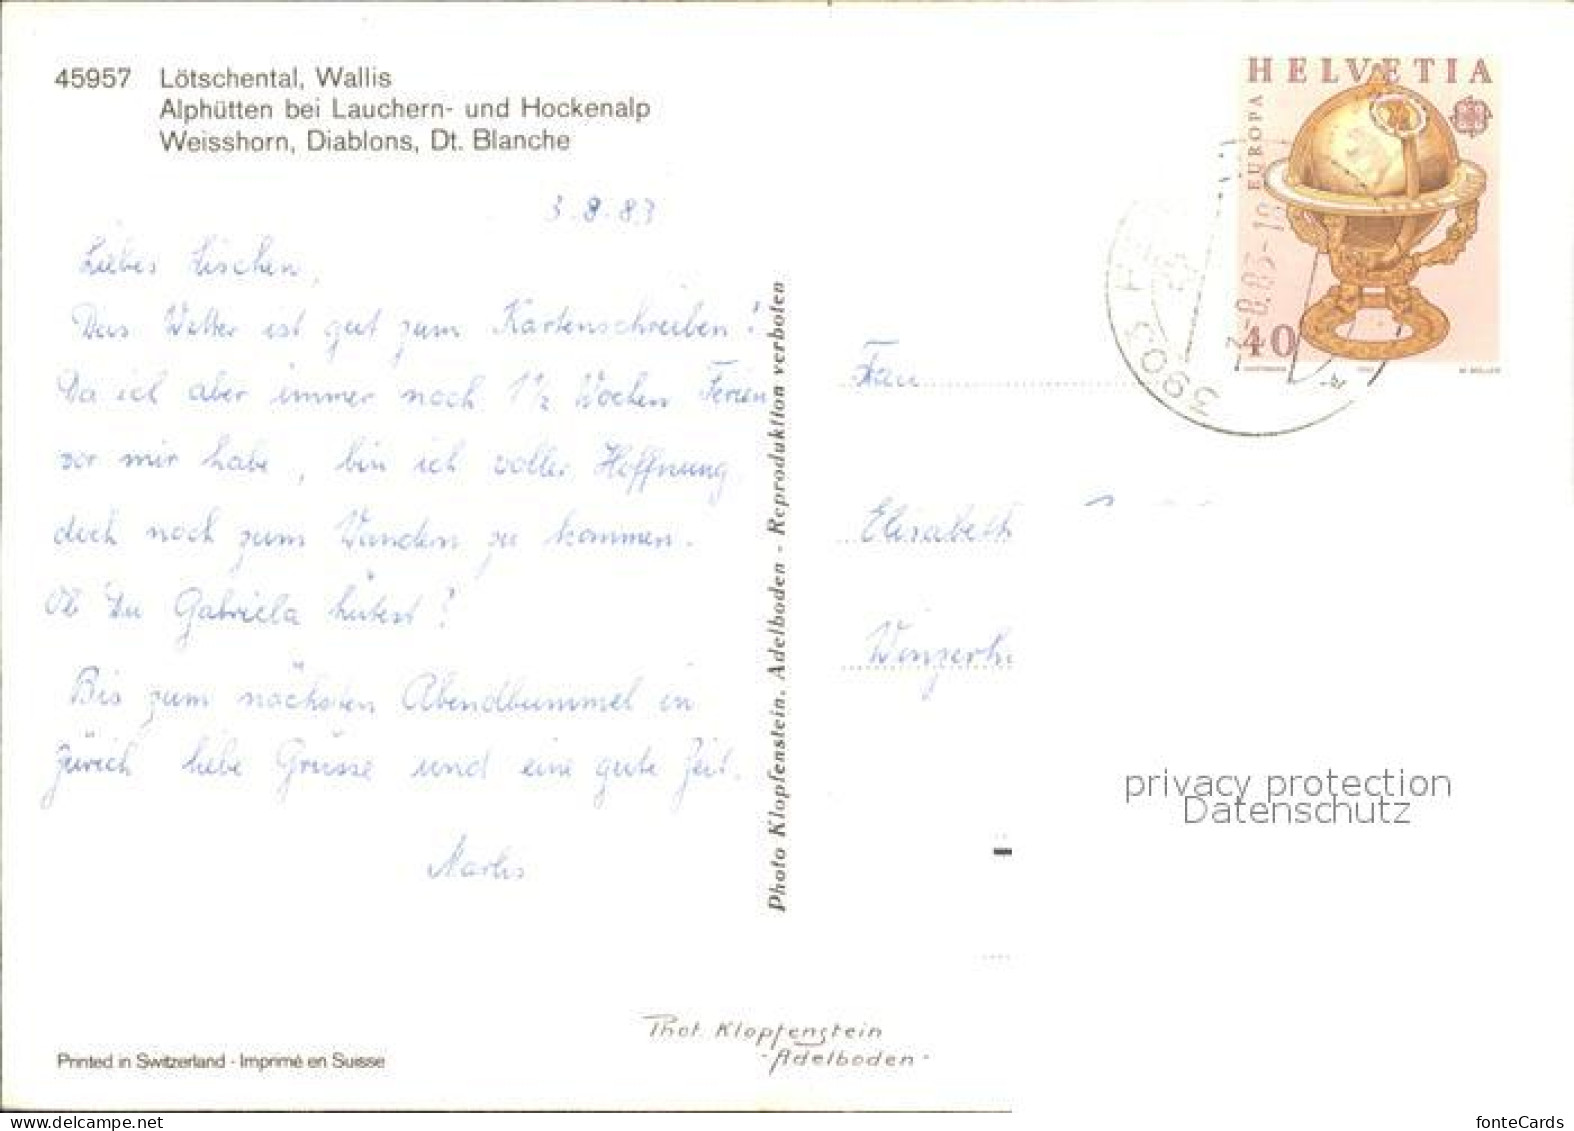 45957 Lötschental, Wallis
Alphütten bei Lauchern- und Hockenalp
Weisshorn, Diablons, Dt. Blanche
3.8.83
Liebes Lischen,
Das Wetter ist gut zum Kartenschreiben!
Da ich aber immer noch 1 1/2 Wochen Ferien
vor mir habe, bin ich voller Hoffnung
doch noch zum Wandern zu kommen.
Ob Du Gabriela hütest?
Bis zum nächsten Abendbummel in
Zürich liebe Grüsse und eine gute Zeit.
Marlis
Photo Klopfenstein, Adelboden - Reproduktion verboten
Phot. Klopfenstein
- Adelboden -
Printed in Switzerland - Imprimé en Suisse
HELVETIA
EUROPA
40
3903
-8.83-18
Frau
Elisabeth
Winzerh
privacy protection
Datenschutz
www.delcampe.net
fonteCards